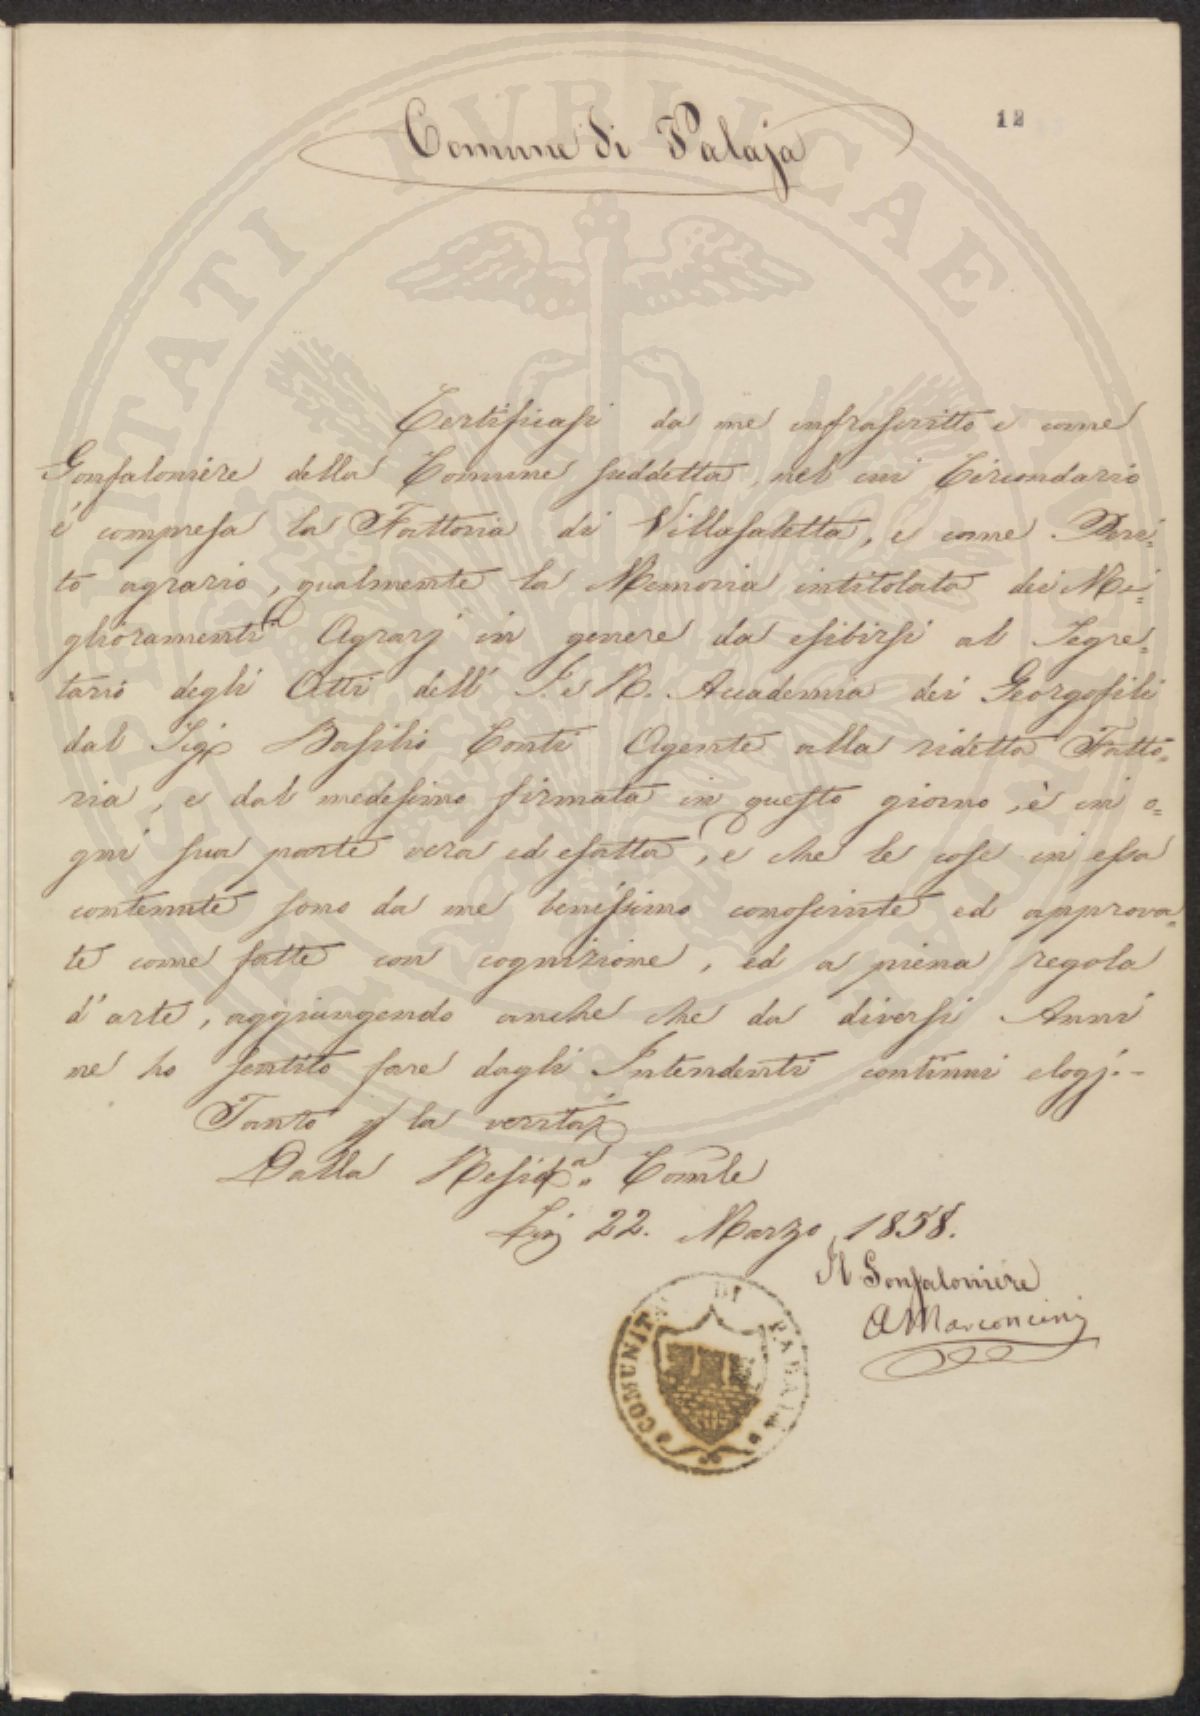 12
Comune di Palaja
Certificasi da me infrascritto e come
Gonfaloniere della Comune suddetta, nel cui Circondario
è compresa la Fattoria di Villasaletta, e come Peri=
to agrario, qualmente la Memoria intitolata dei Mi=
glioramenti Agrarj in genere da esibirsi al Segre=
tario degli Atti dell' I. e R. Accademia dei Georgofili
dal Sig. Basilio Conti Agente alla ridetta Fatto=
ria, e dal medesimo firmata in questo giorno, è in o=
gni sua parte vera ed esatta, e che le cose in essa
contenute sono da me benissimo conosciute ed approva=
te come fatte con cognizione, ed a piena regola
d'arte, aggiungendo anche che da diversi Anni
ne ho sentito fare dagli Intendenti continui elogj.-
Tanto p la verità
Dalla Resid.a Comle
Lì 22. Marzo 1858.
Il Gonfaloniere
A Marconcini
COMUNITÀ DI PALAIA